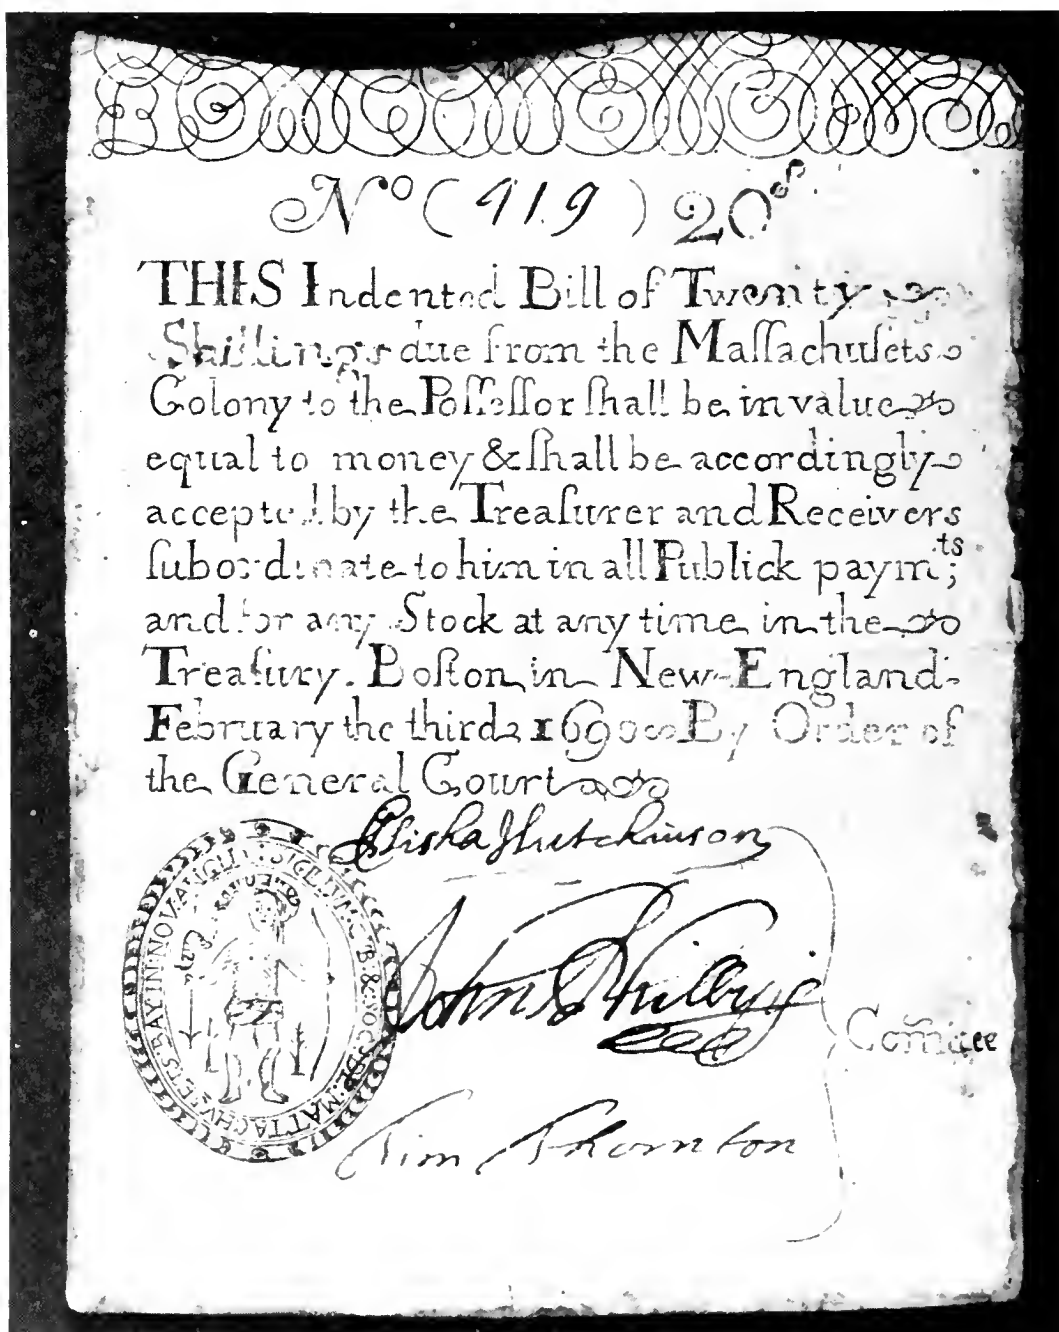 No (919) 20s
THIS Indented Bill of Twenty
Shillings due from the Maſſachuſets
Colony to the Poſſeſſor ſhall be in value
equal to money & ſhall be accordingly
accepted by the Treaſurer and Receivers
ſubordinate to him in all Publick paymts;
and for any Stock at any time in the
Treaſury. Boſton in New-England.
February the third 1690 By Order of
the General Court
Elisha Hutchinson
John Phillips
Tim Thornton
Com̃itee
SIGILLUM: GUB: & SOC: DE: MATTACHVSETS BAY IN NOV: ANGLIA: